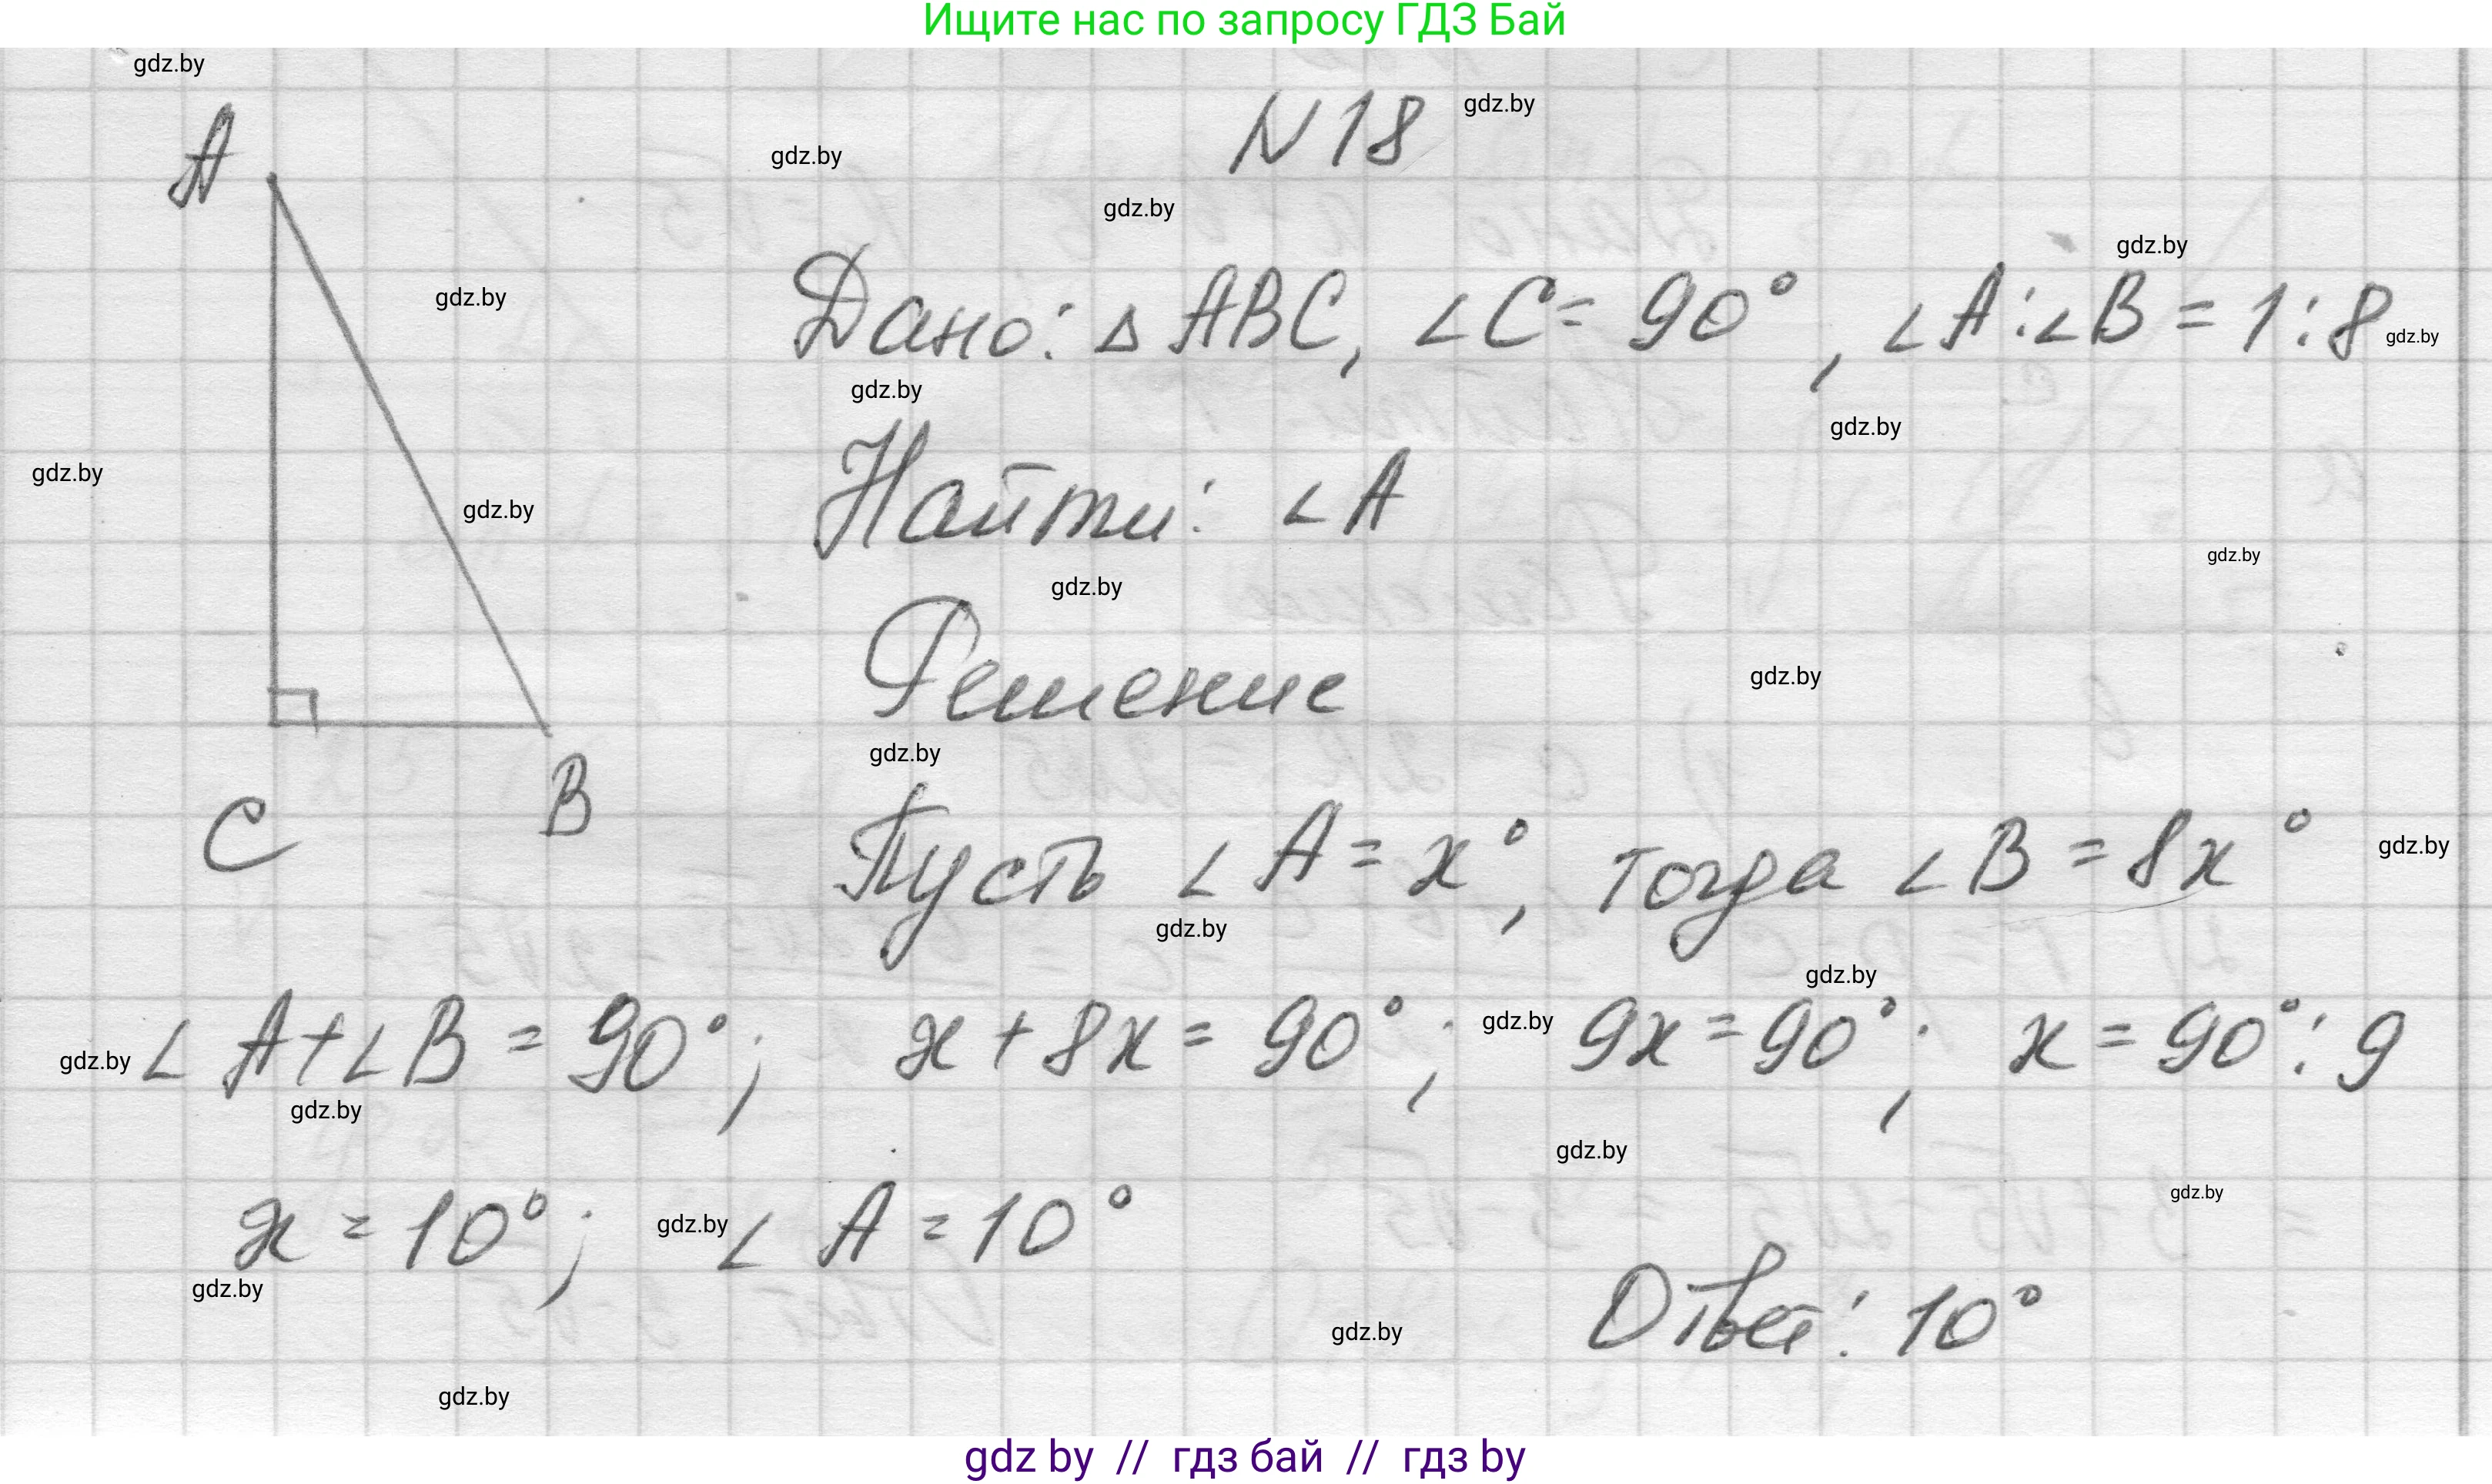 Ищите нас по запросу ГДЗ Бай
gdz.by
N 18 gdz.by
A
gdz.by
gdz.by
gdz.by
gdz.by
Дано: Δ ABC, ∠C = 90°, ∠A:∠B = 1:8 gdz.by
gdz.by
gdz.by
gdz.by
Найти: ∠A
gdz.by
gdz.by
gdz.by
Решение
gdz.by
gdz.by
C B
Пусть ∠A = x°, тогда ∠B = 8x° gdz.by
gdz.by
gdz.by
gdz.by ∠A+∠B = 90°; x + 8x = 90°; gdz.by 9x = 90°; x = 90°:9
gdz.by
gdz.by
gdz.by
x = 10°; gdz.by ∠A = 10°
gdz.by
Ответ: 10°
gdz.by
gdz.by
gdz by // гдз бай // гдз by